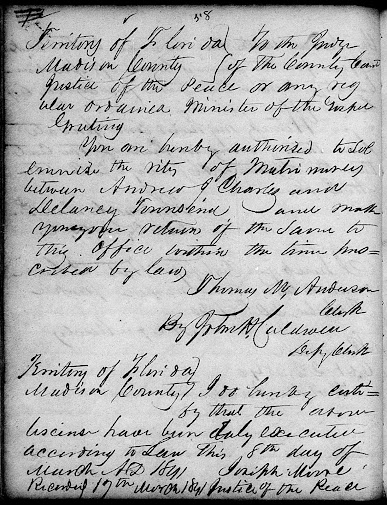 58
Territory of Florida } To the Judge
Madison County } of the County Court
Justice of the Peace or any reg
ular ordained Minister of the Gospel
Greeting
You are hereby authorised to Sol
emnize the rites of Matrimony
between Andrew J Charles and
Delaney Townsend and make
return of the Same to
this Office within the time pres
cribed by law
Thomas M, Anderson
Clerk
By John R, Caldwell
Depy, Clerk
Territory of Florida }
Madison County } I do hereby certi-
fy that the above
liscense have been duly executed
according to Law this 8th day of
March AD 1841 Joseph Moore
Recorded 17th March, 1841 Justice of the Peace